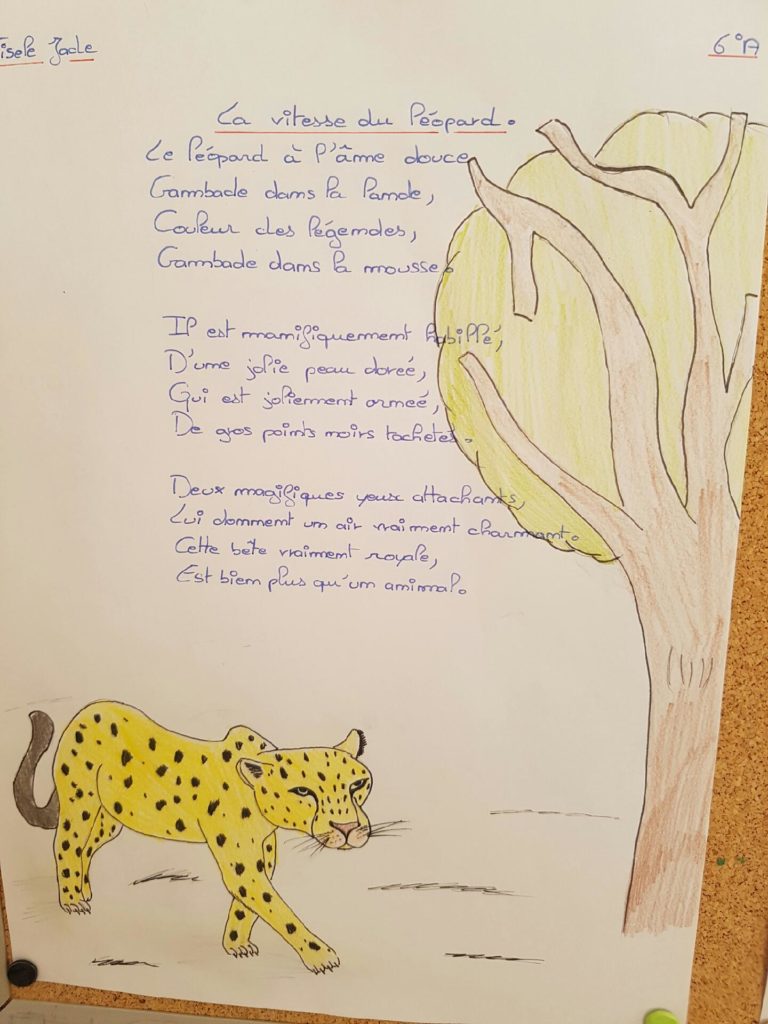 isele Jade
6°A
La vitesse du Léopard.
Le Léopard à l'âme douce
Gambade dans la lande,
Couleur des légendes,
Gambade dans la mousse.
Il est manifiquement habillé,
D'une jolie peau doreé,
Qui est joliement orneé,
De gros points noirs tachetés.
Deux magifiques yeux attachants,
Lui donnent un air vraiment charmant.
Cette bête vraiment royale,
Est bien plus qu'un animal.